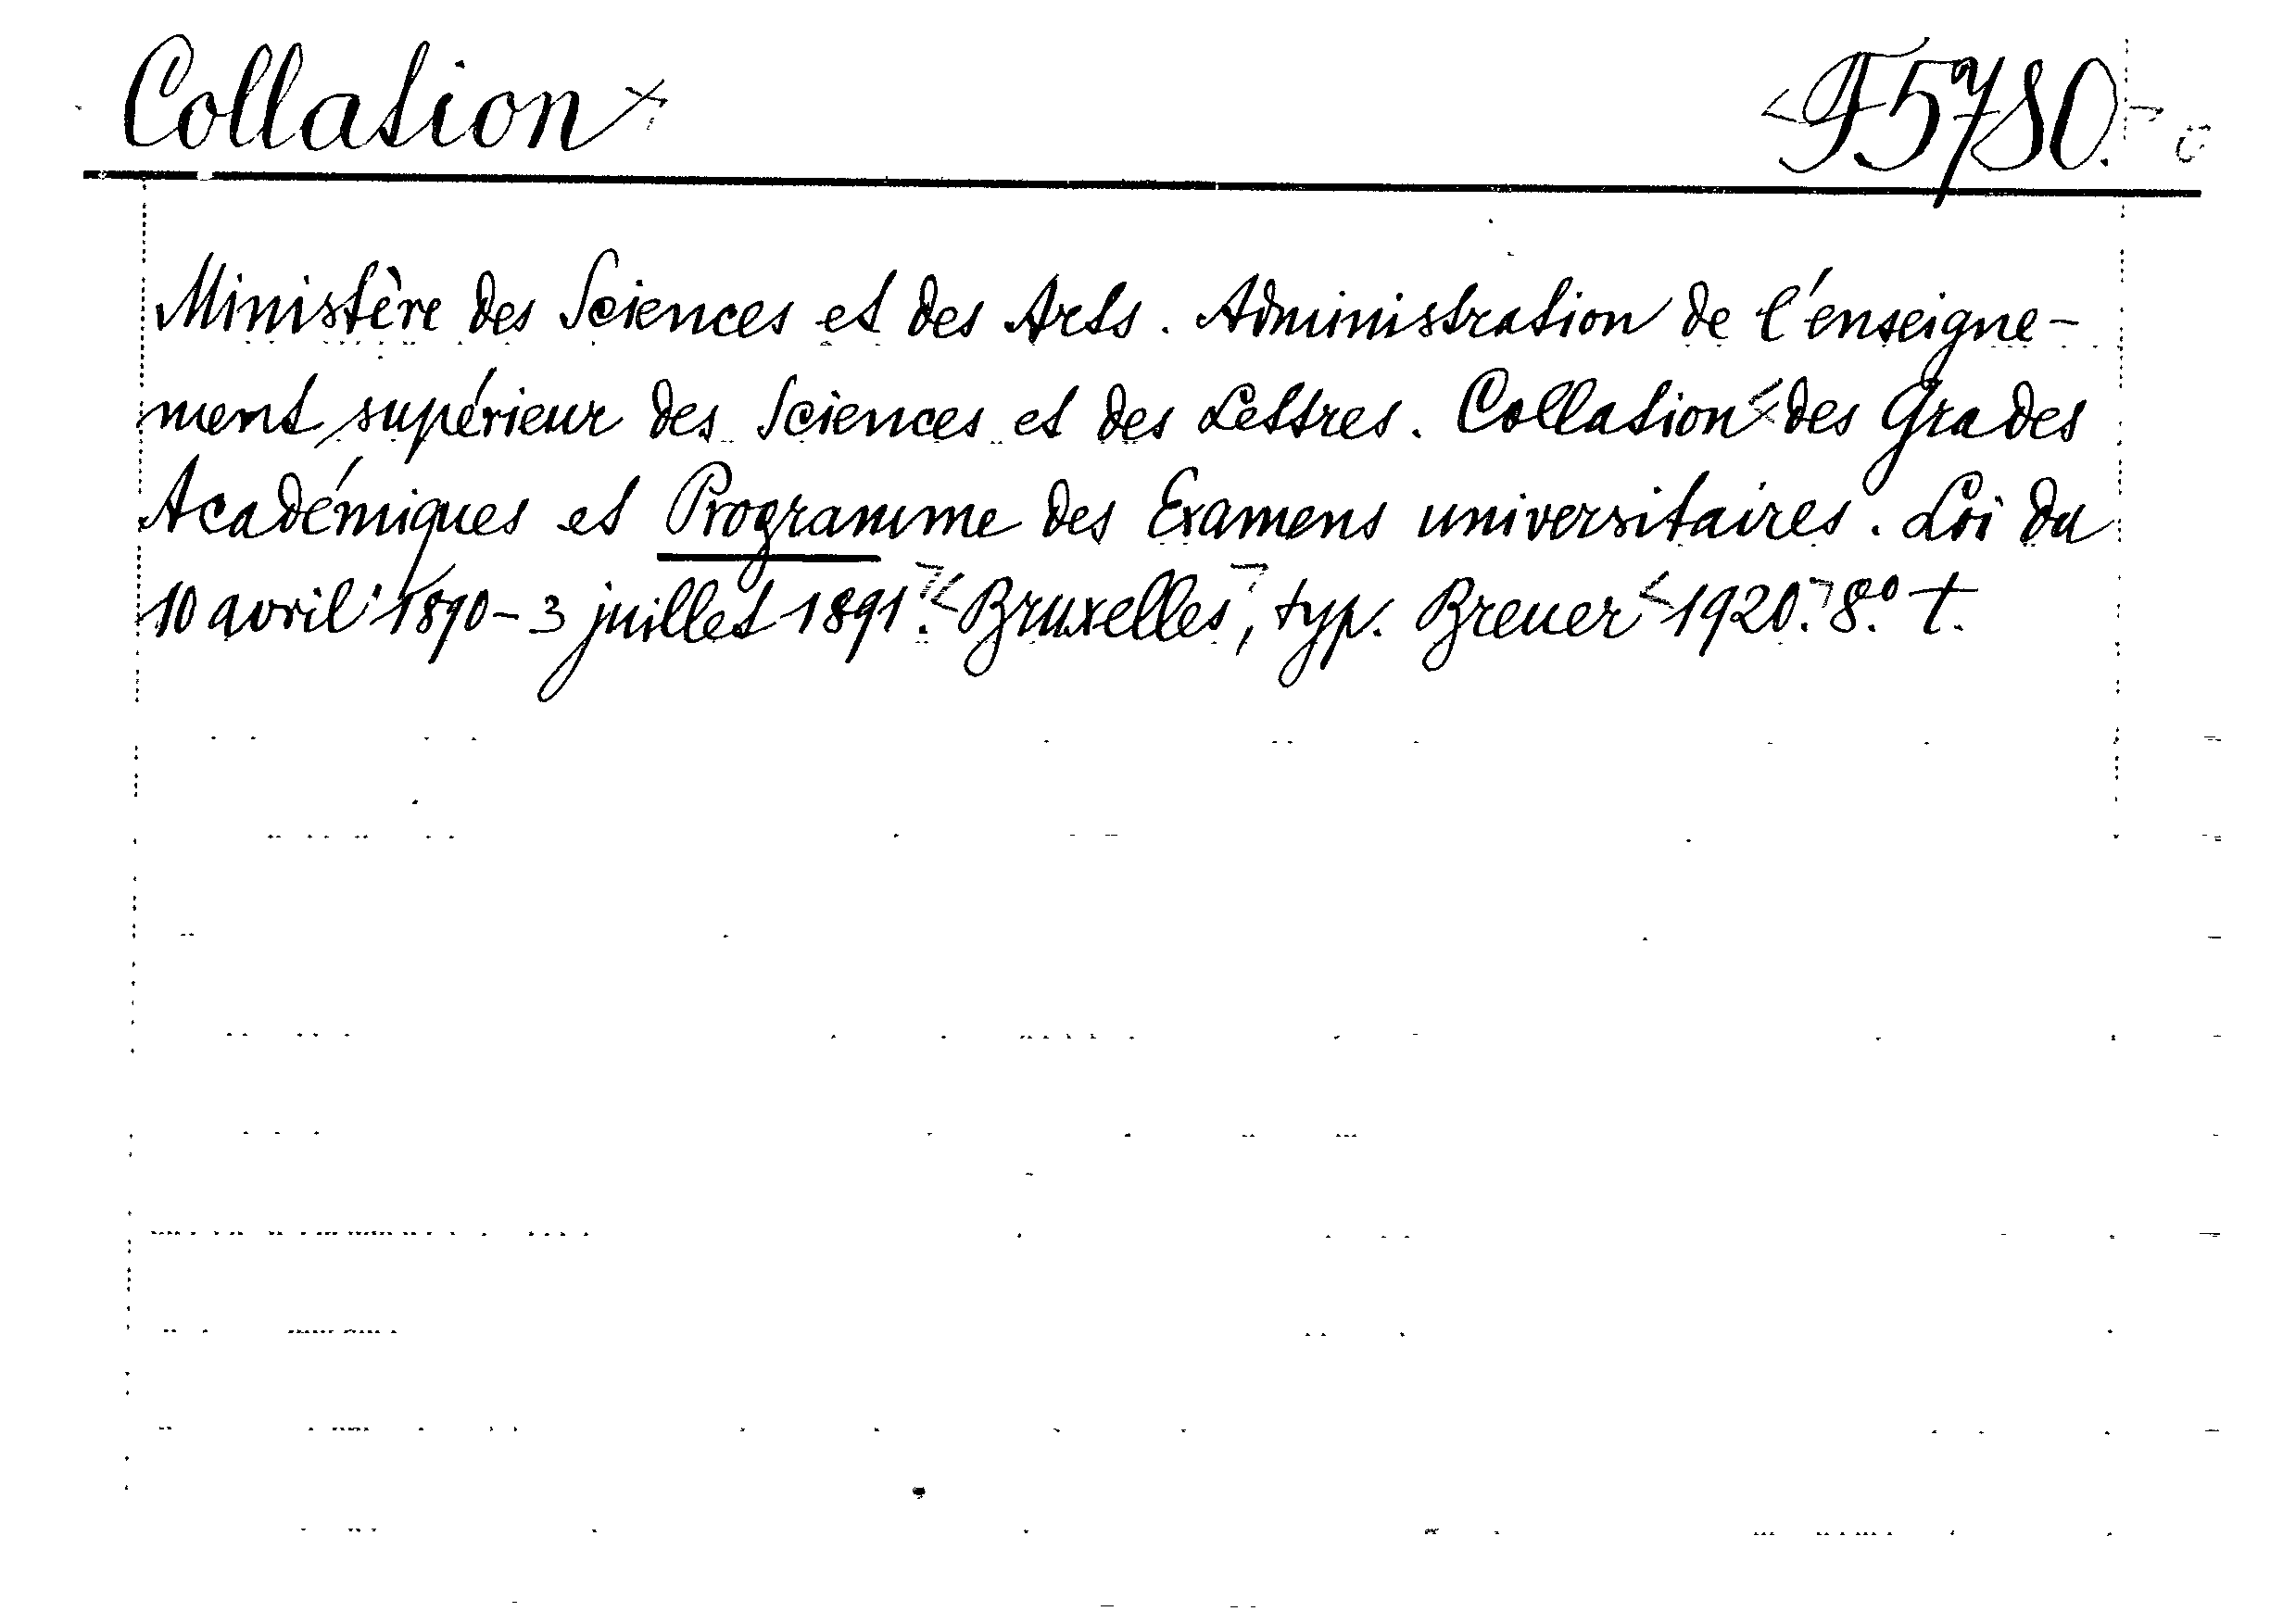 Collation F5780.
Ministère des Sciences et des Arts. Administration de l'enseigne-
ment supérieur des Sciences et des Lettres. Collation des Grades
Académiques et Programme des Examens universitaires. Loi du
10 avril 1890 - 3 juillet 1891. Bruxelles, typ. Breuer 1920. 8.° t.